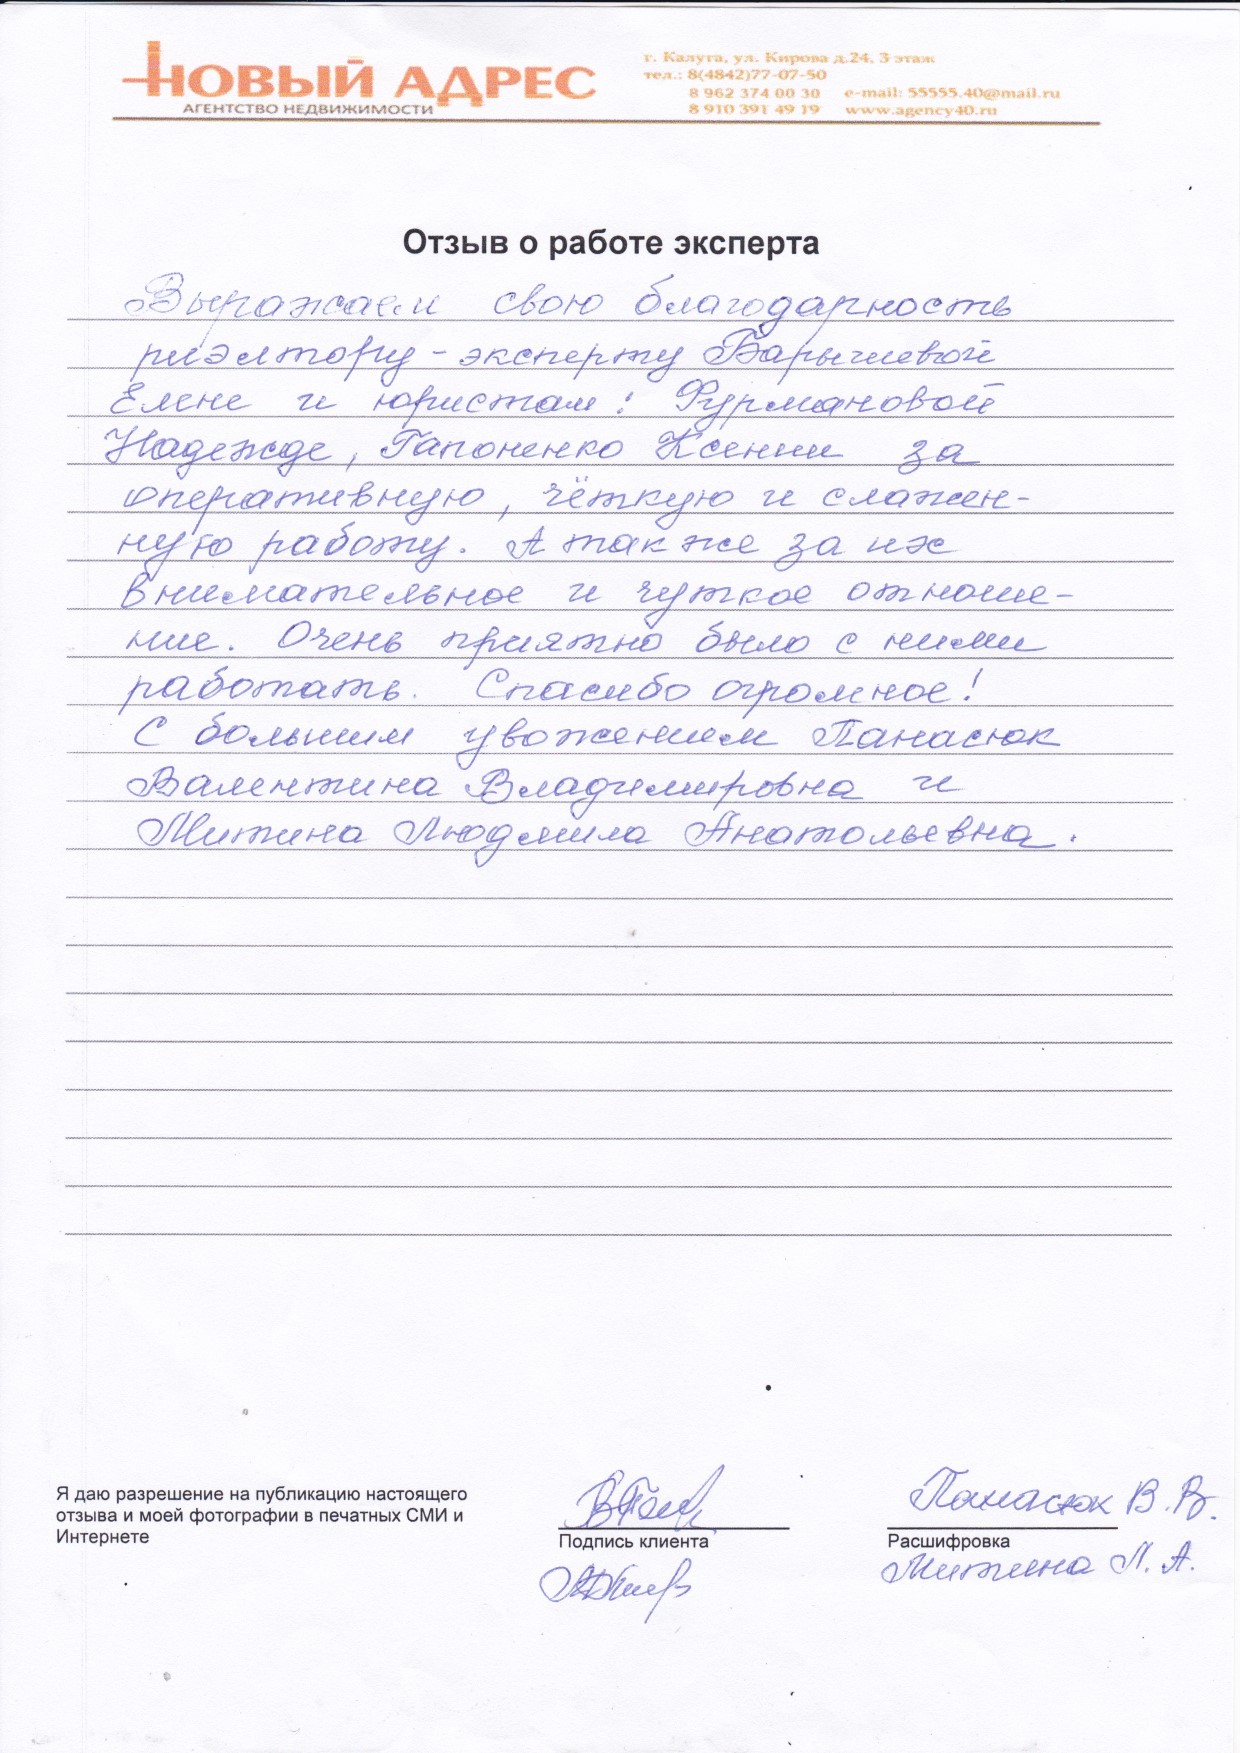 НОВЫЙ АДРЕС
АГЕНТСТВО НЕДВИЖИМОСТИ
г. Калуга, ул. Кирова д.24, 3 этаж
тел.: 8(4842)77-07-50
8 962 374 00 30 e-mail: 55555.40@mail.ru
8 910 391 49 19 www.agency40.ru
Отзыв о работе эксперта
Выражаем свою благодарность
риэлтору - эксперту Барышевой
Елене и юристам: Фурмановой
Надежде, Гапоненко Ксении за
оперативную, чёткую и слажен-
ную работу. А также за их
внимательное и чуткое отноше-
ние. Очень приятно было с ними
работать. Спасибо огромное!
С большим уважением Панасюк
Валентина Владимировна и
Митина Людмила Анатольевна.
Я даю разрешение на публикацию настоящего
отзыва и моей фотографии в печатных СМИ и
Интернете
Подпись клиента
Панасюк В.В.
Расшифровка
Митина Л.А.